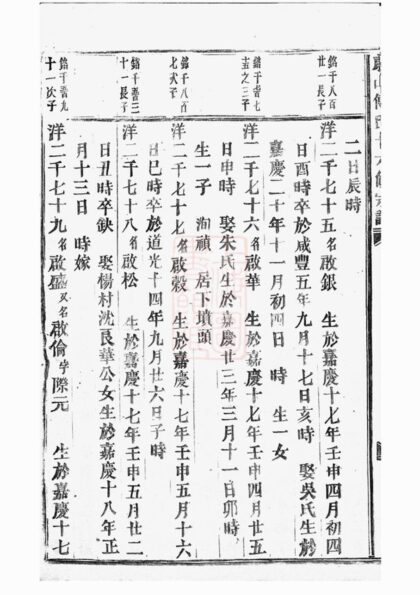 二日辰時
銘千八百
廿一長子
洋二千七十五名啟銀 生於嘉慶十七年壬申四月初四
日酉時卒於咸豐五年九月十七日亥時 娶吳氏生於
嘉慶二十年十一月初四日 時 生一女
銘千
之三子
洋二千七十六名啟華 生於嘉慶十七年壬申四月廿五
日申時 娶朱氏生於嘉慶廿三年三月十一日卯時
生一子 洵禎 居下墳頭
銘千八百
七次子
洋二千七十七名啟穀 生於嘉慶十七年壬申五月十六
日巳時卒於道光十四年九月廿六日子時
銘千
十一長子
洋二千七十八名啟松 生於嘉慶十七年壬申五月廿二
日丑時卒缺 娶楊村沈良華公女生於嘉慶十八年正
月十三日 時嫁
銘千
十一次子
洋二千七十九名啟盛又名啟倫字際元 生於嘉慶十七